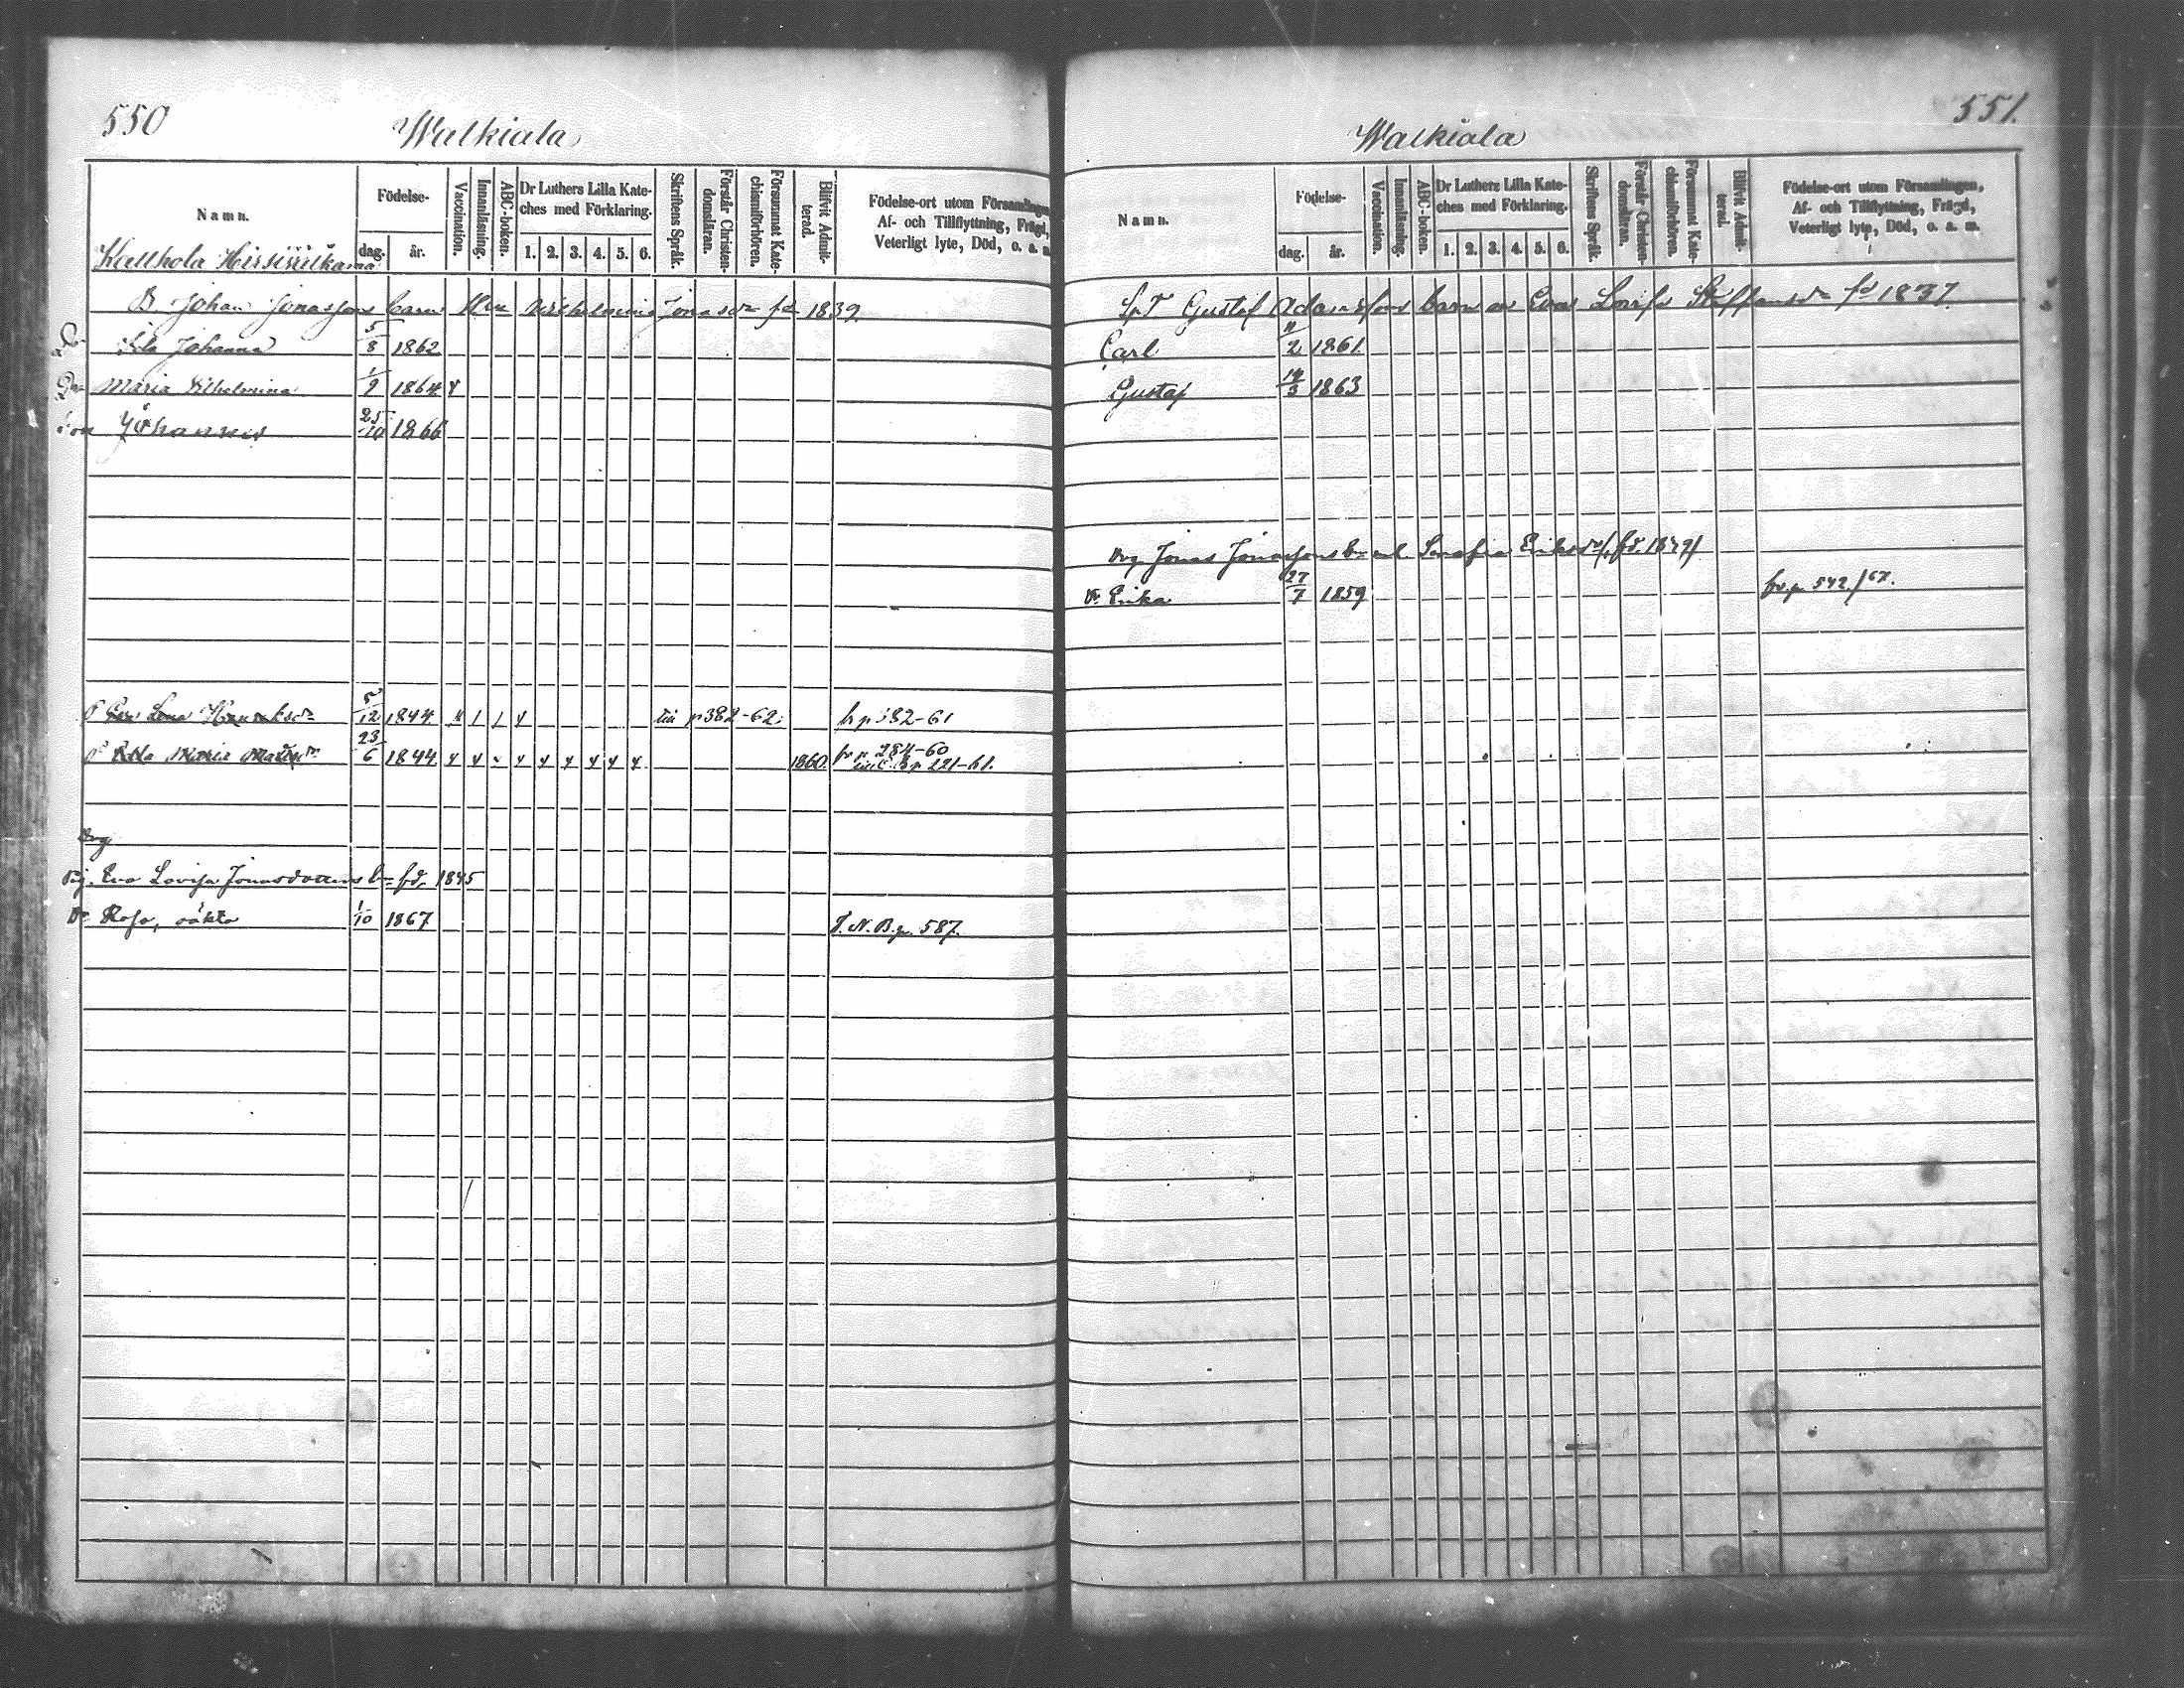 550
Walkiala
Namn.
Födelse-
dag.
år.
Vaccination.
Innanläsning.
ABC-boken.
Dr Luthers Lilla Kate-
ches med Förklaring.
1. 2. 3. 4. 5. 6.
Skriftens Språk.
Förstår Christen-
domsläran.
Försummat Kate-
chismiförhören.
Blifvit Admit-
terad.
Födelse-ort utom Församlingen,
Af- och Tillflyttning, Frägd,
Veterligt lyte, Död, o. a. m.
Kallhola
B Johan Jonassons barn Vilhelmina Jonasdr fd 1839
Johanna 5/8 1862
Dr Maria Vilhelmina 1/9 1864
Son Johannes 25/10 1866
P Eva Lena Henriksdr 5/12 1844 till p 382-62 fr p 382-61
P Maria 23/6 1844 1860 fr p 284-60
p 221-61.
Eva Lovisa Jonasdotters bn fd. 1845
Dr Rosa, oäkta 1/10 1867 J. N. B. p. 587.
551.
Walkiala
Namn.
Födelse-
dag.
år.
Vaccination.
Innanläsning.
ABC-boken.
Dr Luthers Lilla Kate-
ches med Förklaring.
1. 2. 3. 4. 5. 6.
Skriftens Språk.
Förstår Christen-
domsläran.
Försummat Kate-
chismiförhören.
Blifvit Admit-
terad.
Födelse-ort utom Församlingen,
Af- och Tillflyttning, Frägd,
Veterligt lyte, Död, o. a. m.
Gustaf Adamssons barn Eva Lovisa Staffansdr fd 1837
Carl 11/2 1861
Gustaf 14/3 1863
Jonas Jonassons bn Serafia Eriksdr
Dr Erika 27/7 1859 fr. p. 542/67.